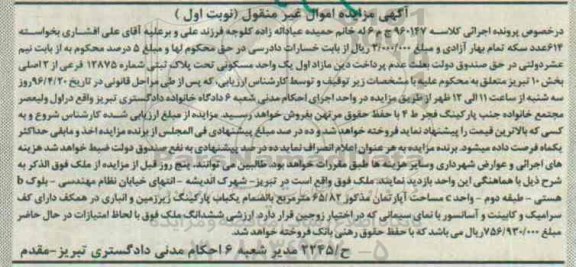 آگهی مزایده اموال غیر منقول (نوبت اول)
درخصوص پرونده اجرائی کلاسه ۹۶۰۱۴۷ج م ۶ له خانم حمیده عباداله زاده کلوجه فرزند علی و برعلیه آقای علی افشاری بخواسته
۶۱۴عدد سکه تمام بهار آزادی و مبلغ ۲/۰۰۰/۰۰۰ ریال از بابت خسارات دادرسی در حق محکوم لها و مبلغ ۵ درصد محکوم به از بابت نیم
عشر دولتی در حق صندوق دولت بعلت عدم پرداخت دین مازاد اول یک واحد مسکونی تحت پلاک ثبتی شماره ۱۲۸۷۵ فرعی از ۲ اصلی
بخش ۱۰ تبریز متعلق به محکوم علیه با مشخصات زیر توقیف و توسط کارشناس ارزیابی، که پس از طی مراحل قانونی در تاریخ ۹۶/۴/۲۰روز
سه شنبه از ساعت ۱۱ الی ۱۲ ظهر از طریق مزایده در واحد اجرای احکام مدنی شعبه ۶ دادگاه خانواده دادگستری تبریز واقع در اول ولیعصر
مجتمع خانواده جنب پارکینگ فجر ط ۴ با حفظ حقوق مرتهن بفروش خواهد رسید. مزایده از مبلغ ارزیابی شده کارشناس شروع و به
کسی که بالاترین قیمت را پیشنهاد نماید فروخته خواهد شد و ده در صد مبلغ پیشنهادی فی المجلس از برنده مزایده اخذ و مابقی حداکثر
یکماه فرصت داده میشود. برنده مزایده به هر عنوان اعلام انصراف نماید ده در صد پیشنهادی به نفع صندوق دولت ضبط خواهد شد هزینه
های اجرائی و عوارض شهرداری وسایر هزینه ها طبق مقررات خواهد بود. طالبین می توانند، پنج روز قبل از مزایده از ملک فوق الذکر به
شرح ذیل با هماهنگی این واحد بازدید نمایند. ملک فوق واقع است در تبریز- شهرک اندیشه - انتهای خیابان نظام مهندسی - بلوک b
هستی - طبقه دوم - واحد c مساحت آپارتمان مذکور ۶۵/۸۲ مترمربع باانضمام یکباب پارکینگ زیرزمین و انباری در همکف دارای کف
سرامیک و کابینت و آسانسور با نمای سیمانی که در اختیار زوجین قرار دارد. ارزشی ششدانگ ملک فوق با لحاظ امتیازات در حال حاضر
مبلغ ۷۵۶/۹۳۰/۰۰۰ریال می باشد که با حفظ حقوق رهنی بانک فروخته خواهد شد.
ح/۲۲۴۵ مدیر شعبه ۶ احکام مدنی دادگستری تبریز-مقدم